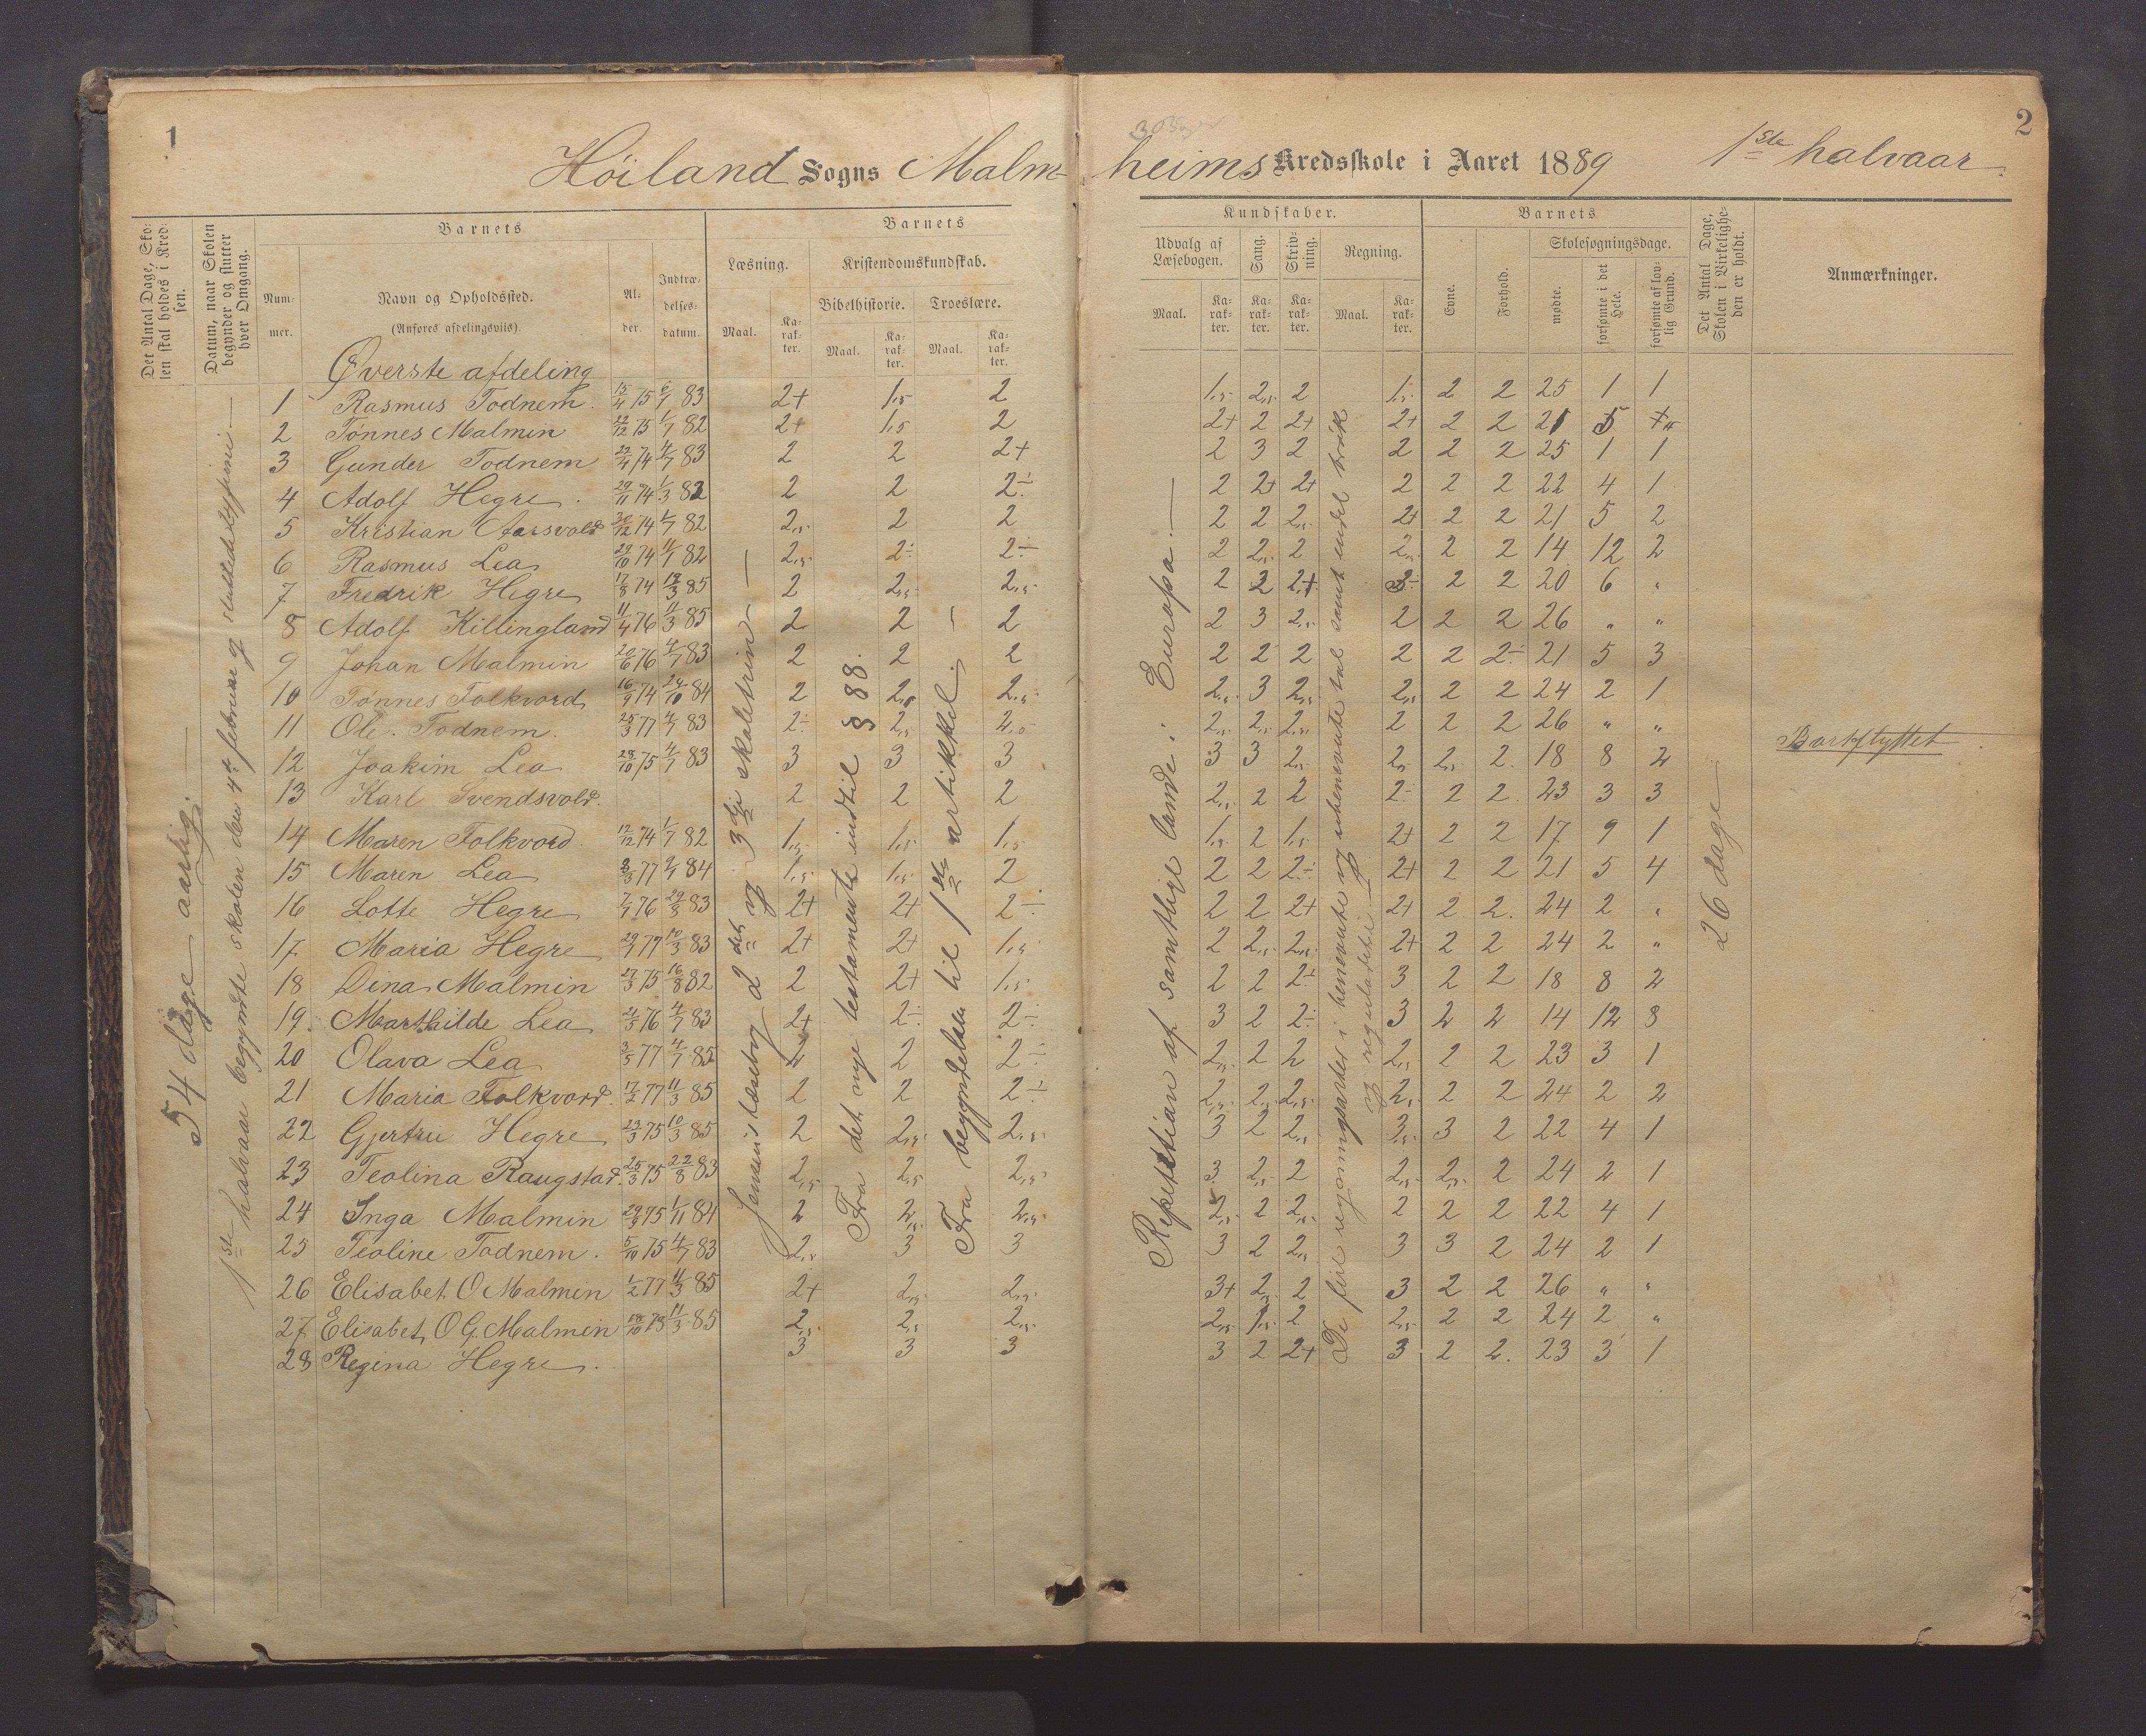 1
Høiland Sogns Malm-
heims Kredsskole i Aaret 1889 1ste halvaar
2
Det Antal Dage, Skolen skal holdes i Kredsen.
Datum, naar Skolen begynder og slutter hver Omgang.
Barnets
Nummer.
Navn og Opholdssted.
(Anføres afdelingsviis).
Alder.
Indtrædelsesdatum.
Barnets
Læsning.
Maal.
Karakter.
Kristendomskundskab.
Bibelhistorie.
Maal.
Karakter.
Troeslære.
Maal.
Karakter.
Kundskaber.
Udvalg af Læsebogen.
Maal.
Karakter.
Sang.
Karakter.
Skrivning.
Karakter.
Regning.
Maal.
Karakter.
Barnets
Evne.
Forhold.
Skolesøgningsdage.
mødte.
forsømte i det Hele.
forsømte af lovlig Grund.
Det Antal Dage, Skolen i Virkeligheden er holdt.
Anmærkninger.
54 dage aarlig.
1ste halvaar begyndte skolen den 4de februar og sluttede
Øverste afdeling
1 Rasmus Todnem. 15/4 75 6/7 83 2+ 1,5 2 1,5 2,5 2 1,5 2 2 25 1 1
2 Tønnes Malmin 22/12 75 1/7 82 2+ 1,5 2 2+ 2 2+ 2+ 2 2 21 5
3 Gunder Todnem 22/4 74 4/7 83 2 2 2+ 2 3 2 2 2 2 25 1 1
4 Adolf Hegre. 29/11 74 1/3 82 2 2 2÷ 2 2+ 2+ 2 2 2 22 4 1
5 Kristian Aarsvold 30/12 74 1/7 82 2,5 2 2 2 2 2,5 2+ 2 2 21 5 2
6 Rasmus Lea 29/10 74 11/7 82 2,5 2÷ 2÷ 2 2,5 2 2,5 2 2 14 12 2
7 Fredrik Hegre 17/8 74 12/3 85 2 2,5 2,5 2 2 2+ 2÷ 2 2 20 6 "
8 Adolf Killingland 11/4 76 11/3 85 2 2 2 2 3 2,5 2 2 2 26 " "
9 Johan Malmin 20/6 76 4/7 83 2 2 2 2 2 2 2 2 2÷ 21 5 3
10 Tønnes Folkvord 16/9 74 24/10 84 2 2,5 2,5 2,5 3 2,5 2,5 2 2 24 2 1
11 Ole Todnem. 25/3 77 4/7 83 2÷ 2,5 2,5 2,5 2,5 2,5 2 2 2 26 " "
12 Joakim Lea 28/10 75 4/7 83 3 3 3 3 3 2,5 2,5 2,5 2 18 8 2 Bortflyttet
13 Karl Svendsvold. 2 2 2 2,5 2 2 2÷ 2 2 23 3 3
14 Maren Folkvord 12/12 74 1/7 82 1,5 1,5 1,5 1,5 2 1,5 2+ 2 2 17 9 1
15 Maren Lea 3/3 77 2/7 84 1,5 1,5 2 2 2 2÷ 2+ 2 2 21 5 4
16 Lotte Hegre 7/7 76 29/3 83 2+ 2+ 2÷ 2 2 2+ 2+ 2 2 24 2 "
17 Maria Hegre 29/7 77 10/3 83 2+ 2+ 1,5 2 2,5 2,5 2+ 2 2 24 2 "
18 Dina Malmin 27/3 75 16/8 82 2 2+ 1,5 2 2 2÷ 3 2 2 18 8 2
19 Marthilde Lea 21/5 76 4/7 83 2+ 2÷ 2÷ 3 2 2÷ 3 2 2 14 12 8
20 Olava Lea 3/5 77 4/7 85 2 2 2÷ 2,5 2 2 2,5 2 2 23 3 1
21 Maria Folkvord. 17/2 77 11/3 85 2 2 2÷ 2,5 2,5 2,5 2,5 2 2 24 2 2
22 Gjertrue Hegre 23/3 75 10/3 85 2 2,5 2,5 3 2 2,5 3 3 2 22 4 1
23 Teolina Raugstad. 25/3 75 22/8 83 2,5 2,5 2,5 3 2,5 2 2,5 2,5 2 24 2 1
24 Inga Malmin 29/9 75 1/11 84 2 2,5 2,5 2,5 2 2,5 2 2 2 22 4 1
25 Teoline Todnem. 5/10 75 4/7 83 2,5 3 3 3 2 2,5 3 3 2 24 2 1
26 Elisabet O Malmin 1/2 77 11/3 85 2+ 2,5 2,5 3+ 2,5 2 3 2 2 26 " "
27 Elisabet O G. Malmin 18/10 75 11/3 85 2,5 2,5 2,5 2,5 1,5 2 2,5 2 2 24 2 "
28 Regina Hegre. 3 3 3 3 2 2+ 3 2 2 23 3 1
Jensens læsebog 2det og 3die skoletrin
Fra det nye testamente indtil § 88.
Fra begyndelsen til 1ste artikkel.
Repetition af samtlige lande i Europa.
De fire regningsarter i benevnte og ubenevnte tal samt endel brøk og regulatetri
26 dage